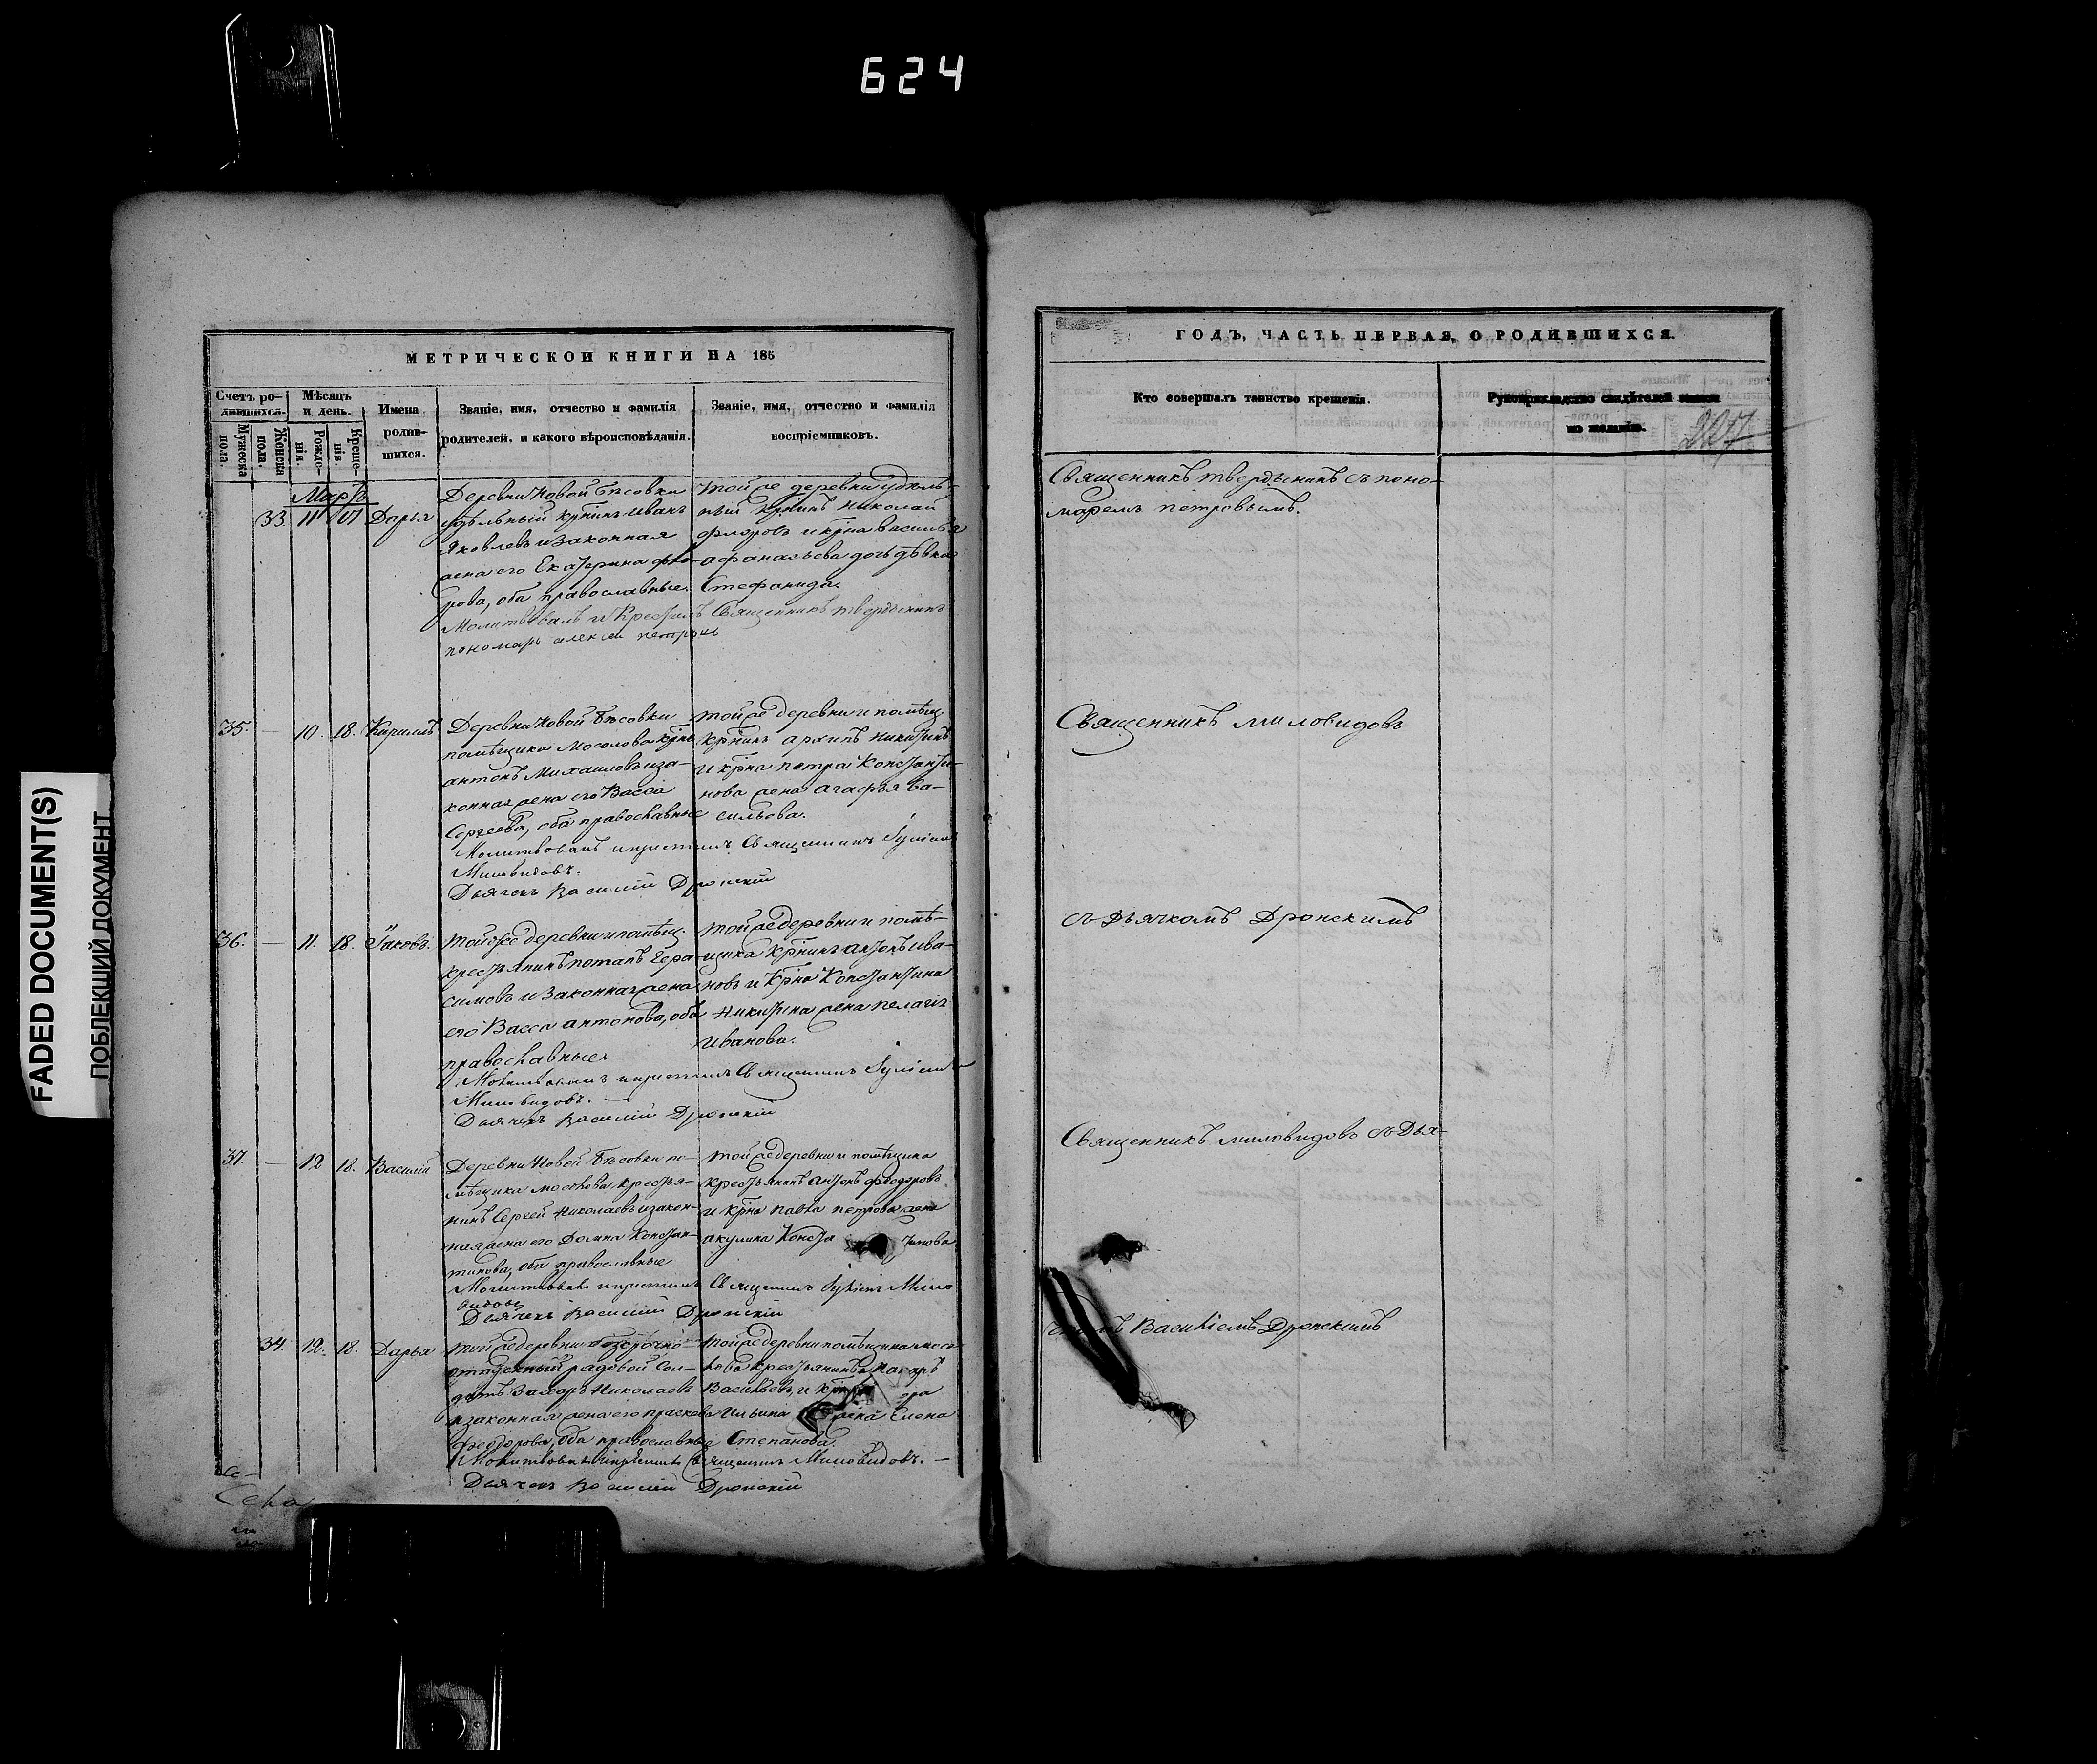 624
FADED DOCUMENT(S)
ПОБЛЕКШИЙ ДОКУМЕНТ
МЕТРИЧЕСКОЙ КНИГИ НА 185
Счетъ ро-
дившихся.
Мужеска пола.
Женска пола.
Мѣсяцъ
и день.
Рожде-
нія.
Креще-
нія.
Имена
родив-
шихся.
Званіе, имя, отчество и фамилія
родителей, и какого вѣроисповѣданія.
Званіе, имя, отчество и фамилія
воспріемниковъ.
Мартъ
33. 11 17 Дарья
Деревни Новой Бѣсовки
удѣльный крнинъ Иванъ
Яковлевъ и законная
жена его Екатерина Фло-
рова, оба православные.
Молитвовалъ и крестилъ Священникъ Твердынинъ
пономарь Алексѣй Петровъ
той же деревни удѣль-
ный крнинъ Николай
Флоровъ и крна Василья
Афанасьева дочь дѣвка
Стефанида.
35. — 10. 18. Кириллъ
Деревни Новой Бѣсовки
помѣщика Мосолова крнъ
Антонъ Михайловъ и за-
конная жена его Васса
Сергеева, оба православные
Молитвовалъ и крестилъ Священникъ
Миловидовъ.
Дьячекъ Василій Дронскій
той же деревни и помѣщ.
крнинъ Архипъ Никитинъ
и крна Петра Константи-
нова жена Агафья Ва-
сильева.
36. — 11. 18. Іаковъ.
той же деревни и помѣщ.
крестьянинъ Потапъ Гера-
симовъ и законная жена
его Васса Антонова, оба
православные.
Молитвовалъ и крестилъ Священникъ
Миловидовъ.
Дьячекъ Василій Дронскій
той же деревни и помѣ-
щика крнинъ Антонъ Ива-
новъ и крна Константина
Никитина жена Пелагія
Иванова.
37. — 12 18. Василій
Деревни Новой Бѣсовки по-
мѣщика Мосолова крестья-
нинъ Сергей Николаевъ и закон-
ная жена его Домна Констан-
тинова, оба православные
Молитвовалъ и крестилъ Священникъ Мило
видовъ
Дьячекъ Василій Дронскій
той же деревни и помѣщика
крестьянинъ Антонъ Феодоровъ
и крна Павла Петрова жена
Акулина Конста тинова
34. 12. 18. Дарья
той же деревни безсрочно-
отпускный рядовой Сол-
датъ Захаръ Николаевъ
и законная жена его Прасковья
Феодорова, оба православные
Молитвовалъ и крестилъ Священникъ Миловидовъ. —
Дьячекъ Василій Дронскій
той же деревни помѣщика Мосо-
лова крестьянинъ
Васильевъ и
Ильина жена Елена
Степанова.
ГОДЪ, ЧАСТЬ ПЕРВАЯ, О РОДИВШИХСЯ.
Кто совершалъ таинство крещенія.
Рукоприкладство свидѣтелей записи
по желанію.
207
Священникъ Твердынинъ съ поно-
маремъ Петровымъ.
Священникъ Миловидовъ
съ Дьячкомъ Дронскимъ
Священникъ Миловидовъ съ Дья-
Василіемъ Дронскимъ